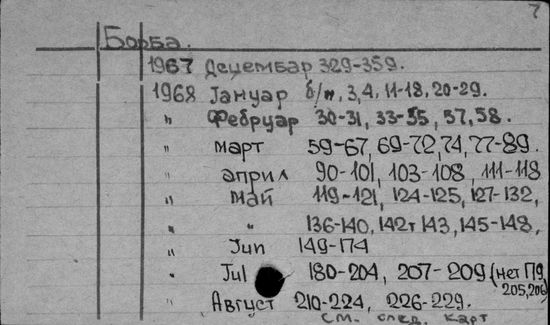 7
Борба.
1967 Децембар 329-359.
1968 Јануар б/н, 3, 4, 11-18, 20-29.
" Фебруар 30-31, 33-55, 57, 58.
" март 59-67, 69-72, 74, 77-89.
" април 90-101, 103-108, 111-118
" май 119-121, 124-125, 127-132,
" " 136-140, 142, 143, 145-148,
" Јип 149-174
" Јul 180-204, 207-209 (нет 179,
205, 206)
" Август 210-224, 226-229.
см. след. карт